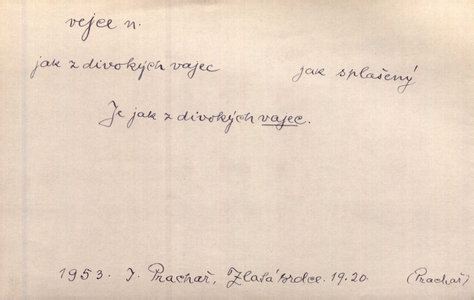 vejce n.
jak z divokých vajec jak splašený
Je jak z divokých vajec.
1953. J. Prachař, Zlatá brdce. 19.20. (Prachař)